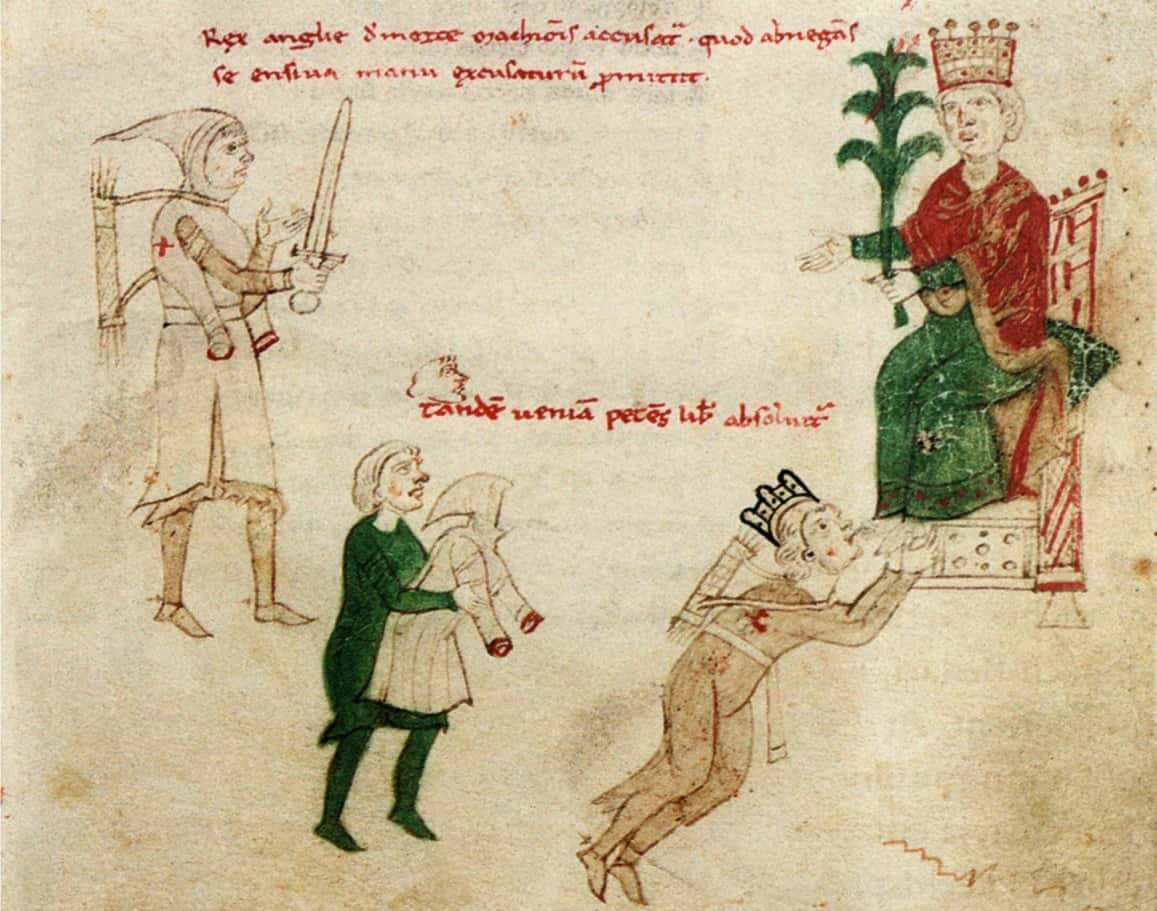 Rex anglie d' morte Marchiōis accusat᷑ . quod abnegās
se ensiua manu excusaturū ꝓmittit .
tandē ueniā petēs lib᷑ absoluit᷑